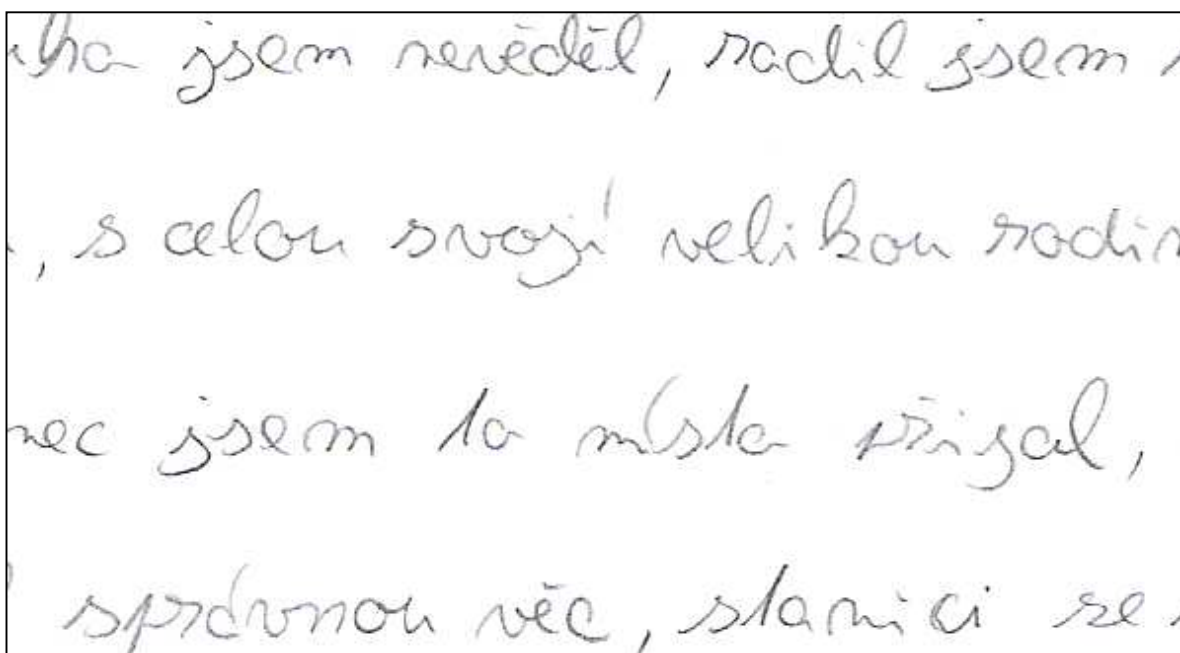 jsem nevěděl, radil jsem
, s celou svojí velikou
jsem ta místa přijal,
správnou věc, stanici se